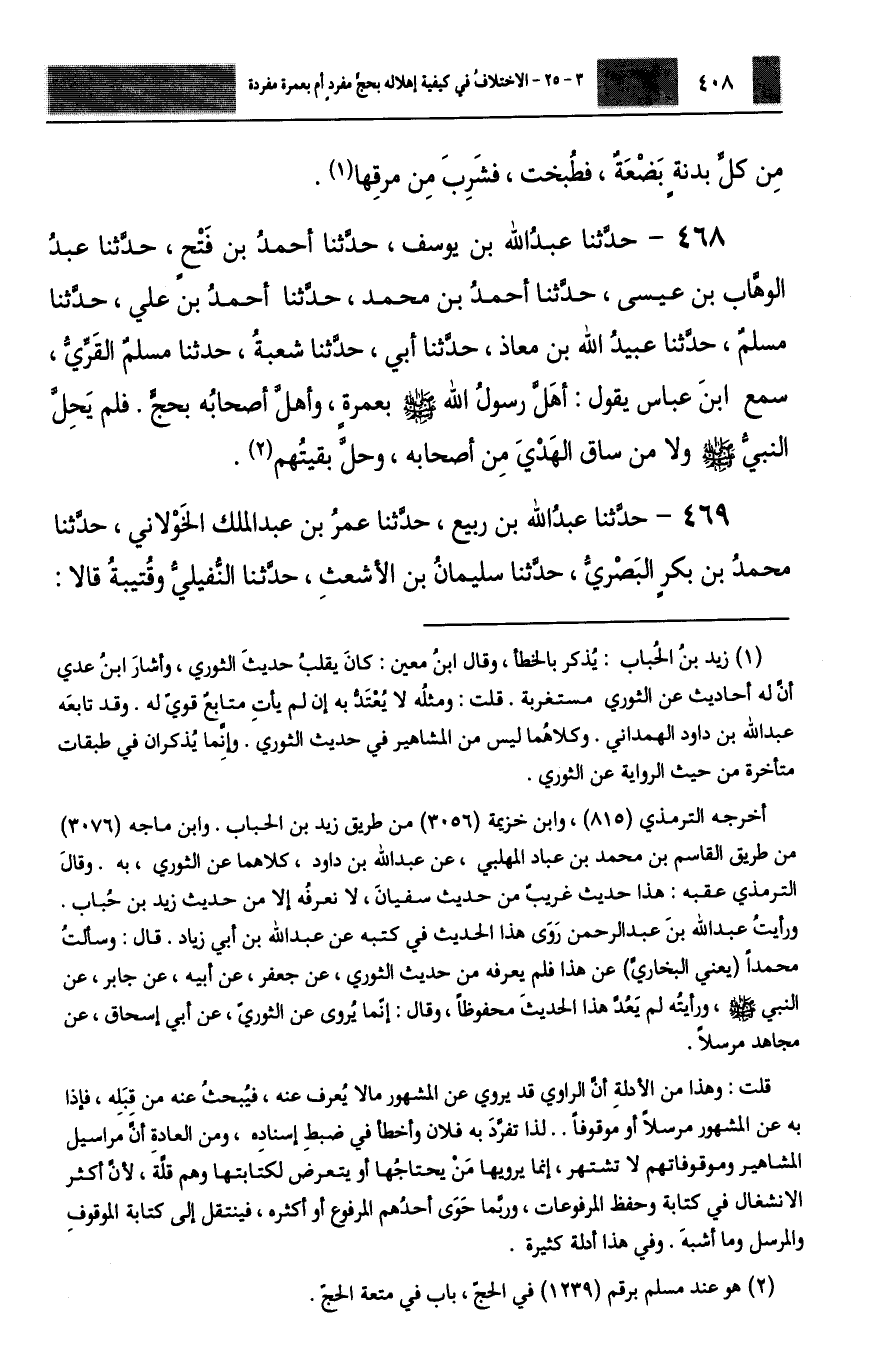 ٤٠٨ ٣ - ٢٥ - الاختلافُ في كيفية إهلاله بحجٍّ مفردٍ أم بعمرة مفردة
مِن كلِّ بدنةٍ بَضْعَةٌ ، فطُبخت ، فشَرِبَ مِن مرقِها(١) .
٤٦٨ - حدَّثنا عبدُالله بن يوسف ، حدَّثنا أحمدُ بن فَتْحٍ ، حدَّثنا عبدُ
الوهَّاب بن عيسى ، حدَّثنا أحمدُ بن محمد ، حدَّثنا أحمدُ بن علي ، حدَّثنا
مسلمٌ ، حدَّثنا عبيدُ الله بن معاذ ، حدَّثنا أبي ، حدَّثنا شعبةُ ، حدثنا مسلمٌ القَرِّيُّ ،
سمع ابنَ عباس يقول : أهَلَّ رسولُ الله ﷺ بعمرةٍ ، وأهلَّ أصحابُه بحجٍّ . فلم يَحِلَّ
النبيُّ ﷺ ولا من ساق الهَدْيَ مِن أصحابه ، وحلَّ بقيتُهم(٢) .
٤٦٩ - حدَّثنا عبدُالله بن ربيع ، حدَّثنا عمرُ بن عبدالملك الخَوْلاني ، حدَّثنا
محمدُ بن بكرٍ البَصْريُّ ، حدَّثنا سليمانُ بن الأشعثِ ، حدَّثنا النُّفيليُّ وقُتيبةُ قالا :
(١) زيد بنُ الحُباب : يُذكر بالخطأ ، وقال ابنُ معين : كانَ يقلبُ حديثَ الثوري ، وأشارَ ابنُ عدي
أنَّ له أحاديث عن الثوري مستغربة . قلت : ومثلُه لا يُعْتَدُّ به إن لم يأتِ متابعٌ قويّ له . وقد تابعَه
عبدالله بن داود الهمداني . وكلاهُما ليس من المشاهير في حديث الثوري . وإنَّما يُذكران في طبقات
متأخرة من حيث الرواية عن الثوري .
أخرجه الترمذي (٨١٥) ، وابن خزيمة (٣٠٥٦) من طريق زيد بن الحباب . وابن ماجه (٣٠٧٦)
من طريق القاسم بن محمد بن عباد المهلبي ، عن عبدالله بن داود ، كلاهما عن الثوري ، به . وقالَ
الترمذي عقبه : هذا حديث غريبٌ من حديث سفيانَ ، لا نعرفُه إلا من حديث زيد بن حُباب .
ورأيتُ عبدالله بنَ عبدالرحمن رَوَى هذا الحديث في كتبه عن عبدالله بن أبي زياد . قال : وسألتُ
محمداً (يعني البخاريّ) عن هذا فلم يعرفه من حديث الثوري ، عن جعفر ، عن أبيه ، عن جابر ، عن
النبي ﷺ ، ورأيتُه لم يَعُدَّ هذا الحديثَ محفوظاً ، وقال : إنّما يُروى عن الثوريّ ، عن أبي إسحاق ، عن
مجاهد مرسلاً .
قلت : وهذا من الأدلةِ أنَّ الراوي قد يروي عن المشهور مالا يُعرف عنه ، فيُبحثُ عنه من قِبَلِه ، فإذا
به عن المشهور مرسلاً أو موقوفاً . . لذا تفرَّدَ به فلان وأخطأ في ضبطِ إسناده ، ومن العادةِ أنَّ مراسيل
المشاهير وموقوفاتهم لا تشتهر ، إنما يرويها مَنْ يحتاجُها أو يتعرض لكتابتها وهم قلَّة ، لأنَّ أكثر
الانشغال في كتابة وحفظ المرفوعات ، وربَّما حَوَى أحدُهم المرفوع أو أكثره ، فينتقل إلى كتابة الموقوفِ
والمرسل وما أشبهَ . وفي هذا أدلة كثيرة .
(٢) هو عند مسلم برقم (١٢٣٩) في الحجّ ، باب في متعة الحجّ .